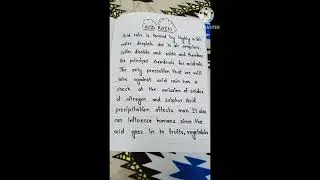 ACID RAIN
Acid rain is formed by highly acidic
water droplets due to air emissions,
Sulfur dioxide and oxide and therefore
the principal chemicals for acidrain.
The only precaution that we will
take against acid rain has a
check at the emission of oxides
of nitrogen and sulphur. Acid
precipitation affects man. It also
can influence humans since the
acid goes in to fruits, vegetables